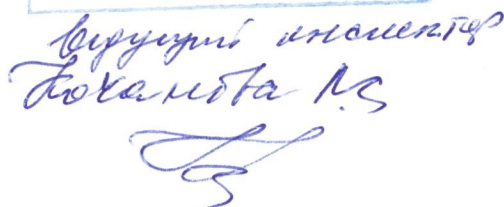 Ведущий инспектор
Коханова